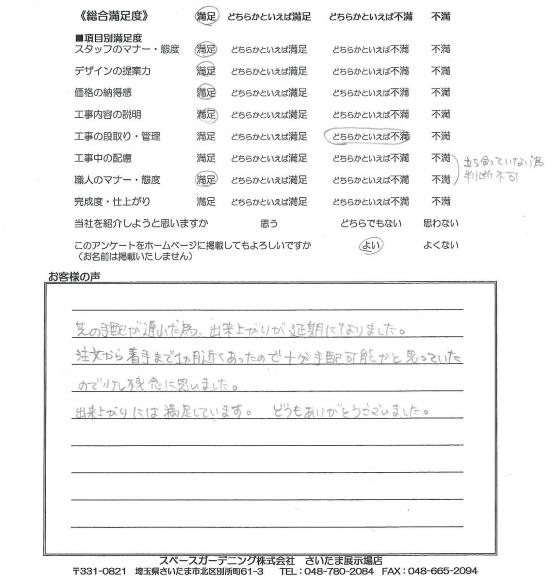 《総合満足度》 満足 どちらかといえば満足 どちらかといえば不満 不満
■項目別満足度
スタッフのマナー・態度 満足 どちらかといえば満足 どちらかといえば不満 不満
デザインの提案力 満足 どちらかといえば満足 どちらかといえば不満 不満
価格の納得感 満足 どちらかといえば満足 どちらかといえば不満 不満
工事内容の説明 満足 どちらかといえば満足 どちらかといえば不満 不満
工事の段取り・管理 満足 どちらかといえば満足 どちらかといえば不満 不満
工事中の配慮 満足 どちらかといえば満足 どちらかといえば不満 不満
職人のマナー・態度 満足 どちらかといえば満足 どちらかといえば不満 不満
立ち会っていない為
判断不可
完成度・仕上がり 満足 どちらかといえば満足 どちらかといえば不満 不満
当社を紹介しようと思いますか 思う どちらでもない 思わない
このアンケートをホームページに掲載してもよろしいですか よい よくない
(お名前は掲載いたしません)
お客様の声
の手配が遅れた為、出来上がりが延期になりました。
注文から着手まで1ヵ月近くあったので十分手配可能かと思っていた
ので少し残念に思いました。
出来上がりには満足しています。 どうもありがとうございました。
スペースガーデニング株式会社 さいたま展示場店
〒331-0821 埼玉県さいたま市北区別所町61-3 TEL:048-780-2084 FAX:048-665-2094